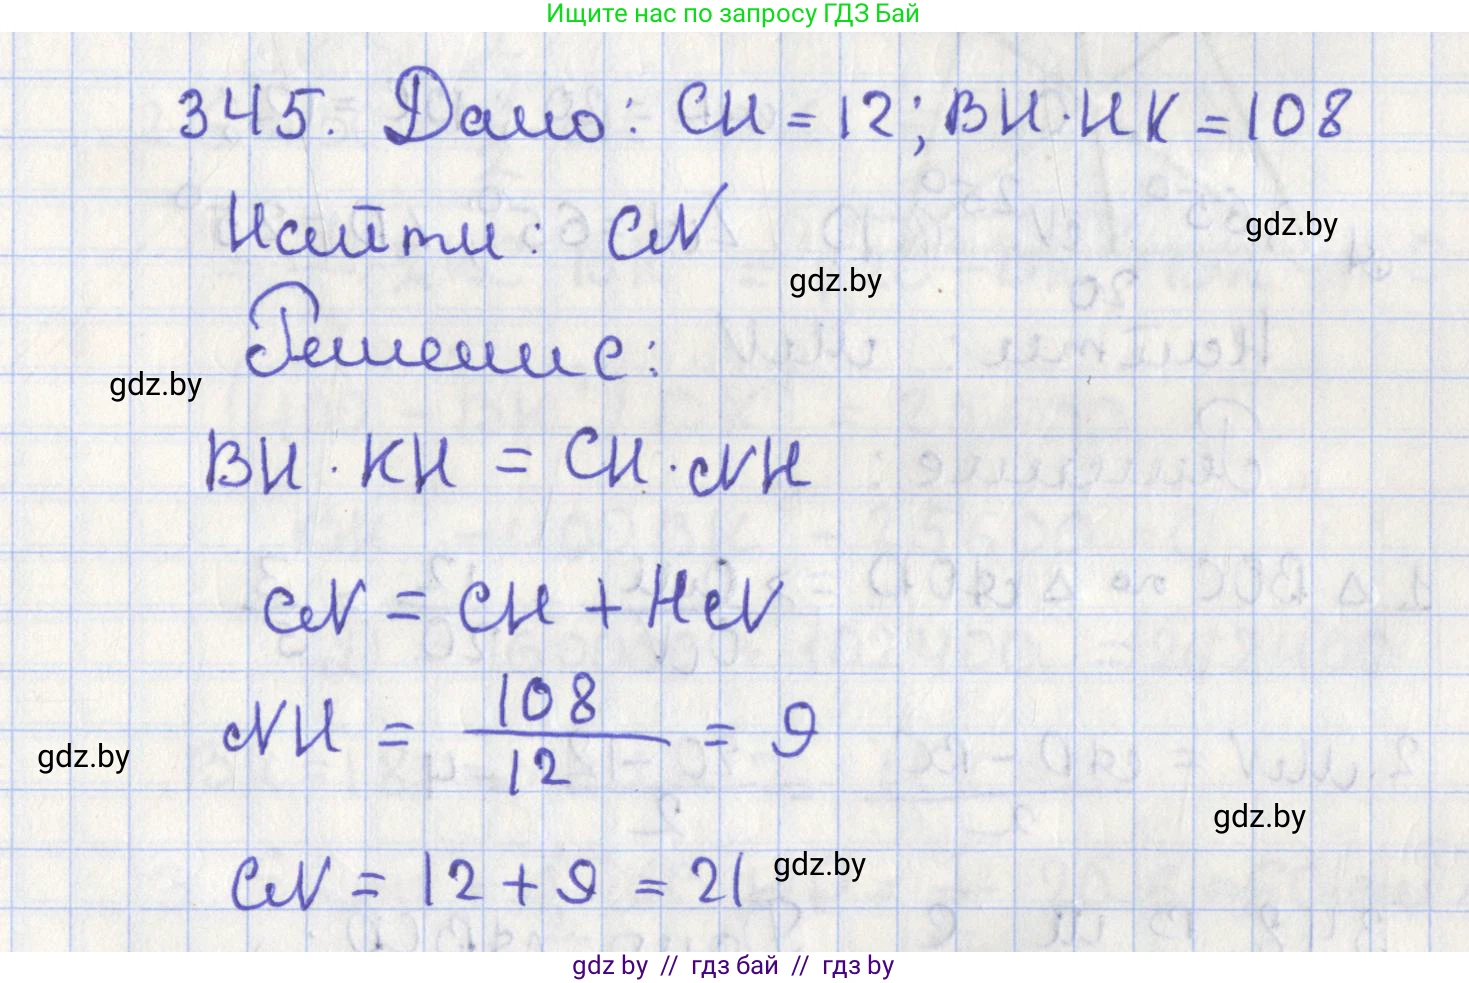 Ищите нас по запросу ГДЗ Бай
345. Дано: CH = 12; BH · HK = 108
Найти: CN
gdz.by
gdz.by
Решение:
gdz.by
BH · KH = CH · NH
CN = CH + HN
NH = 108/12 = 9
gdz.by
gdz.by
CN = 12 + 9 = 21
gdz.by
gdz by // гдз бай // гдз by